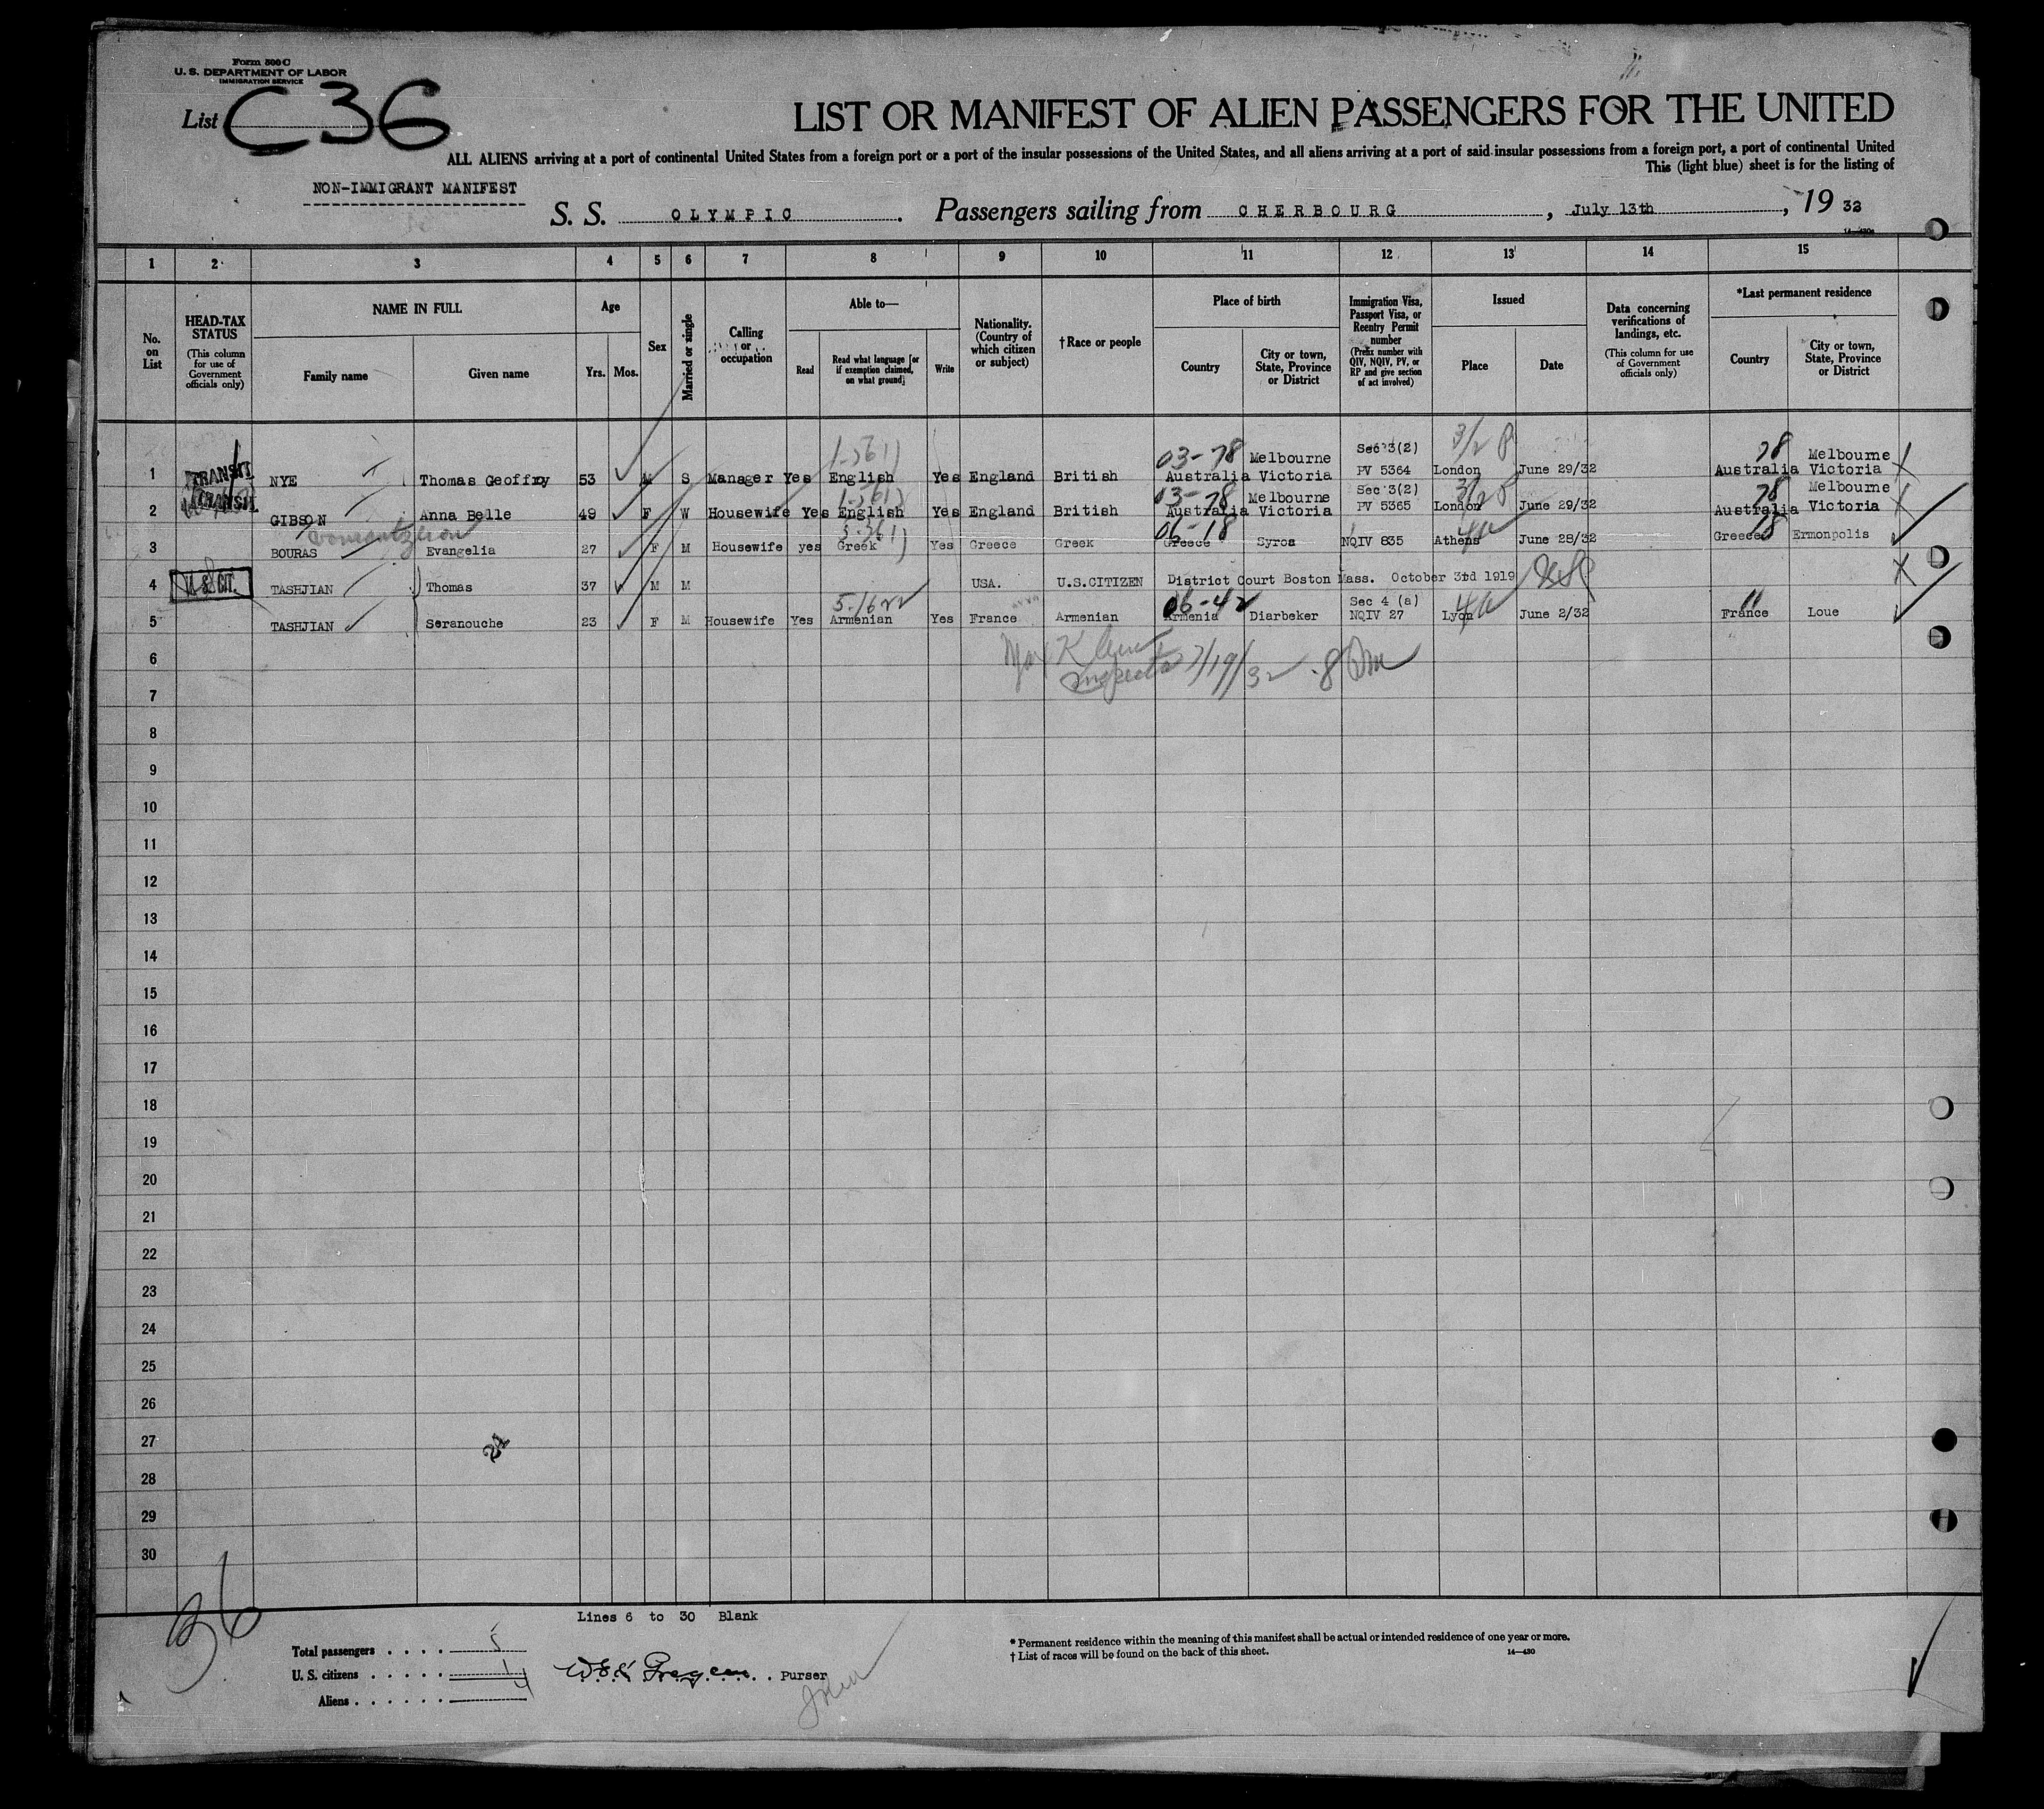 Form 500 C
U. S. DEPARTMENT OF LABOR
IMMIGRATION SERVICE
List C36
LIST OR MANIFEST OF ALIEN PASSENGERS FOR THE UNITED
ALL ALIENS arriving at a port of continental United States from a foreign port or a port of the insular possessions of the United States, and all aliens arriving at a port of said insular possessions from a foreign port, a port of continental United
This (light blue) sheet is for the listing of
NON-IMMIGRANT MANIFEST
S. S. OLYMPIC. Passengers sailing from CHERBOURG, July 13th, 19 32
1 2 3 4 5 6 7 8 9 10 11 12 13 14 15
No. on List
HEAD-TAX STATUS
(This column for use of Government officials only)
NAME IN FULL
Family name Given name
Age
Yrs. Mos.
Sex
Married or single
Calling or occupation
Able to—
Read
Read what language [or if exemption claimed, on what ground]
Write
Nationality. (Country of which citizen or subject)
†Race or people
Place of birth
Country
City or town, State, Province or District
Immigration Visa, Passport Visa, or Reentry Permit number
(Prefix number with QIV, NQIV, PV, or RP and give section of act involved)
Issued
Place Date
Data concerning verifications of landings, etc.
(This column for use of Government officials only)
*Last permanent residence
Country
City or town, State, Province or District
03-78 Melbourne Sec 3(2) 3/2 78 Melbourne
1 TRANSIT NYE Thomas Geoffroy 53 M S Manager Yes English Yes England British Australia Victoria PV 5364 London June 29/32 Australia Victoria
03-78 Melbourne Sec 3(2) 78 Melbourne
2 TRANSIT GIBSON Anna Belle 49 F W Housewife Yes English Yes England British Australia Victoria PV 5365 London June 29/32 Australia Victoria
06-18 18
3 BOURAS Evangelia 27 F M Housewife yes Greek Yes Greece Greek Greece Syros NQIV 835 Athens June 28/32 Greece Ermonpolis
4 U.S. CIT. TASHJIAN Thomas 37 M M USA. U.S.CITIZEN District Court Boston Mass. October 3rd 1919
06-42 Sec 4 (a) 4a
5 TASHJIAN Seranouche 23 F M Housewife Yes Armenian Yes France Armenian Armenia Diarbeker NQIV 27 Lyon June 2/32 France Loue
7/19/32 8 Pm
6
7
8
9
10
11
12
13
14
15
16
17
18
19
20
21
22
23
24
25
26
27
28
29
30
21
36
Lines 6 to 30 Blank
Total passengers . . . . 5
U. S. citizens . . . . . 1
Aliens . . . . . . 4
Purser
* Permanent residence within the meaning of this manifest shall be actual or intended residence of one year or more.
† List of races will be found on the back of this sheet.
14—430